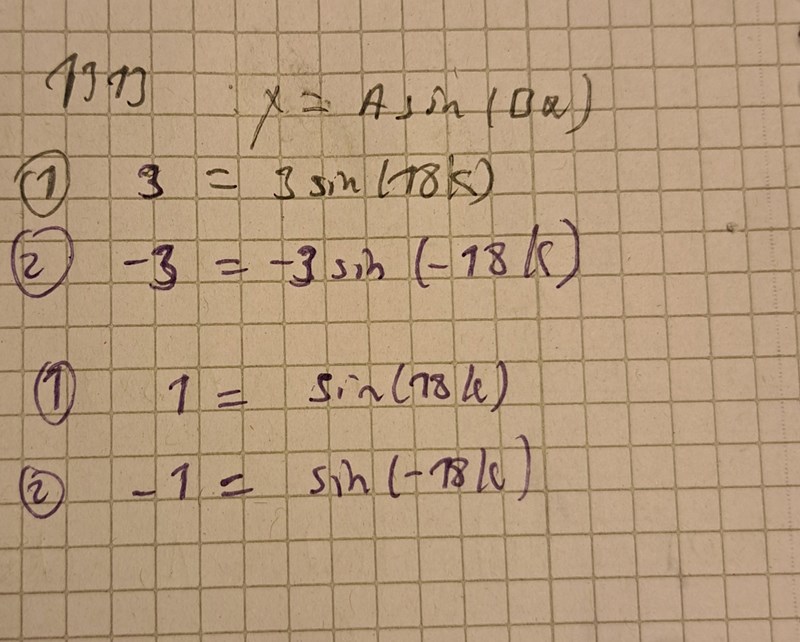 1313 y = A sin(Bx)
① 3 = 3 sin(18k)
② -3 = -3 sin(-18k)
① 1 = sin(18k)
② -1 = sin(-18k)